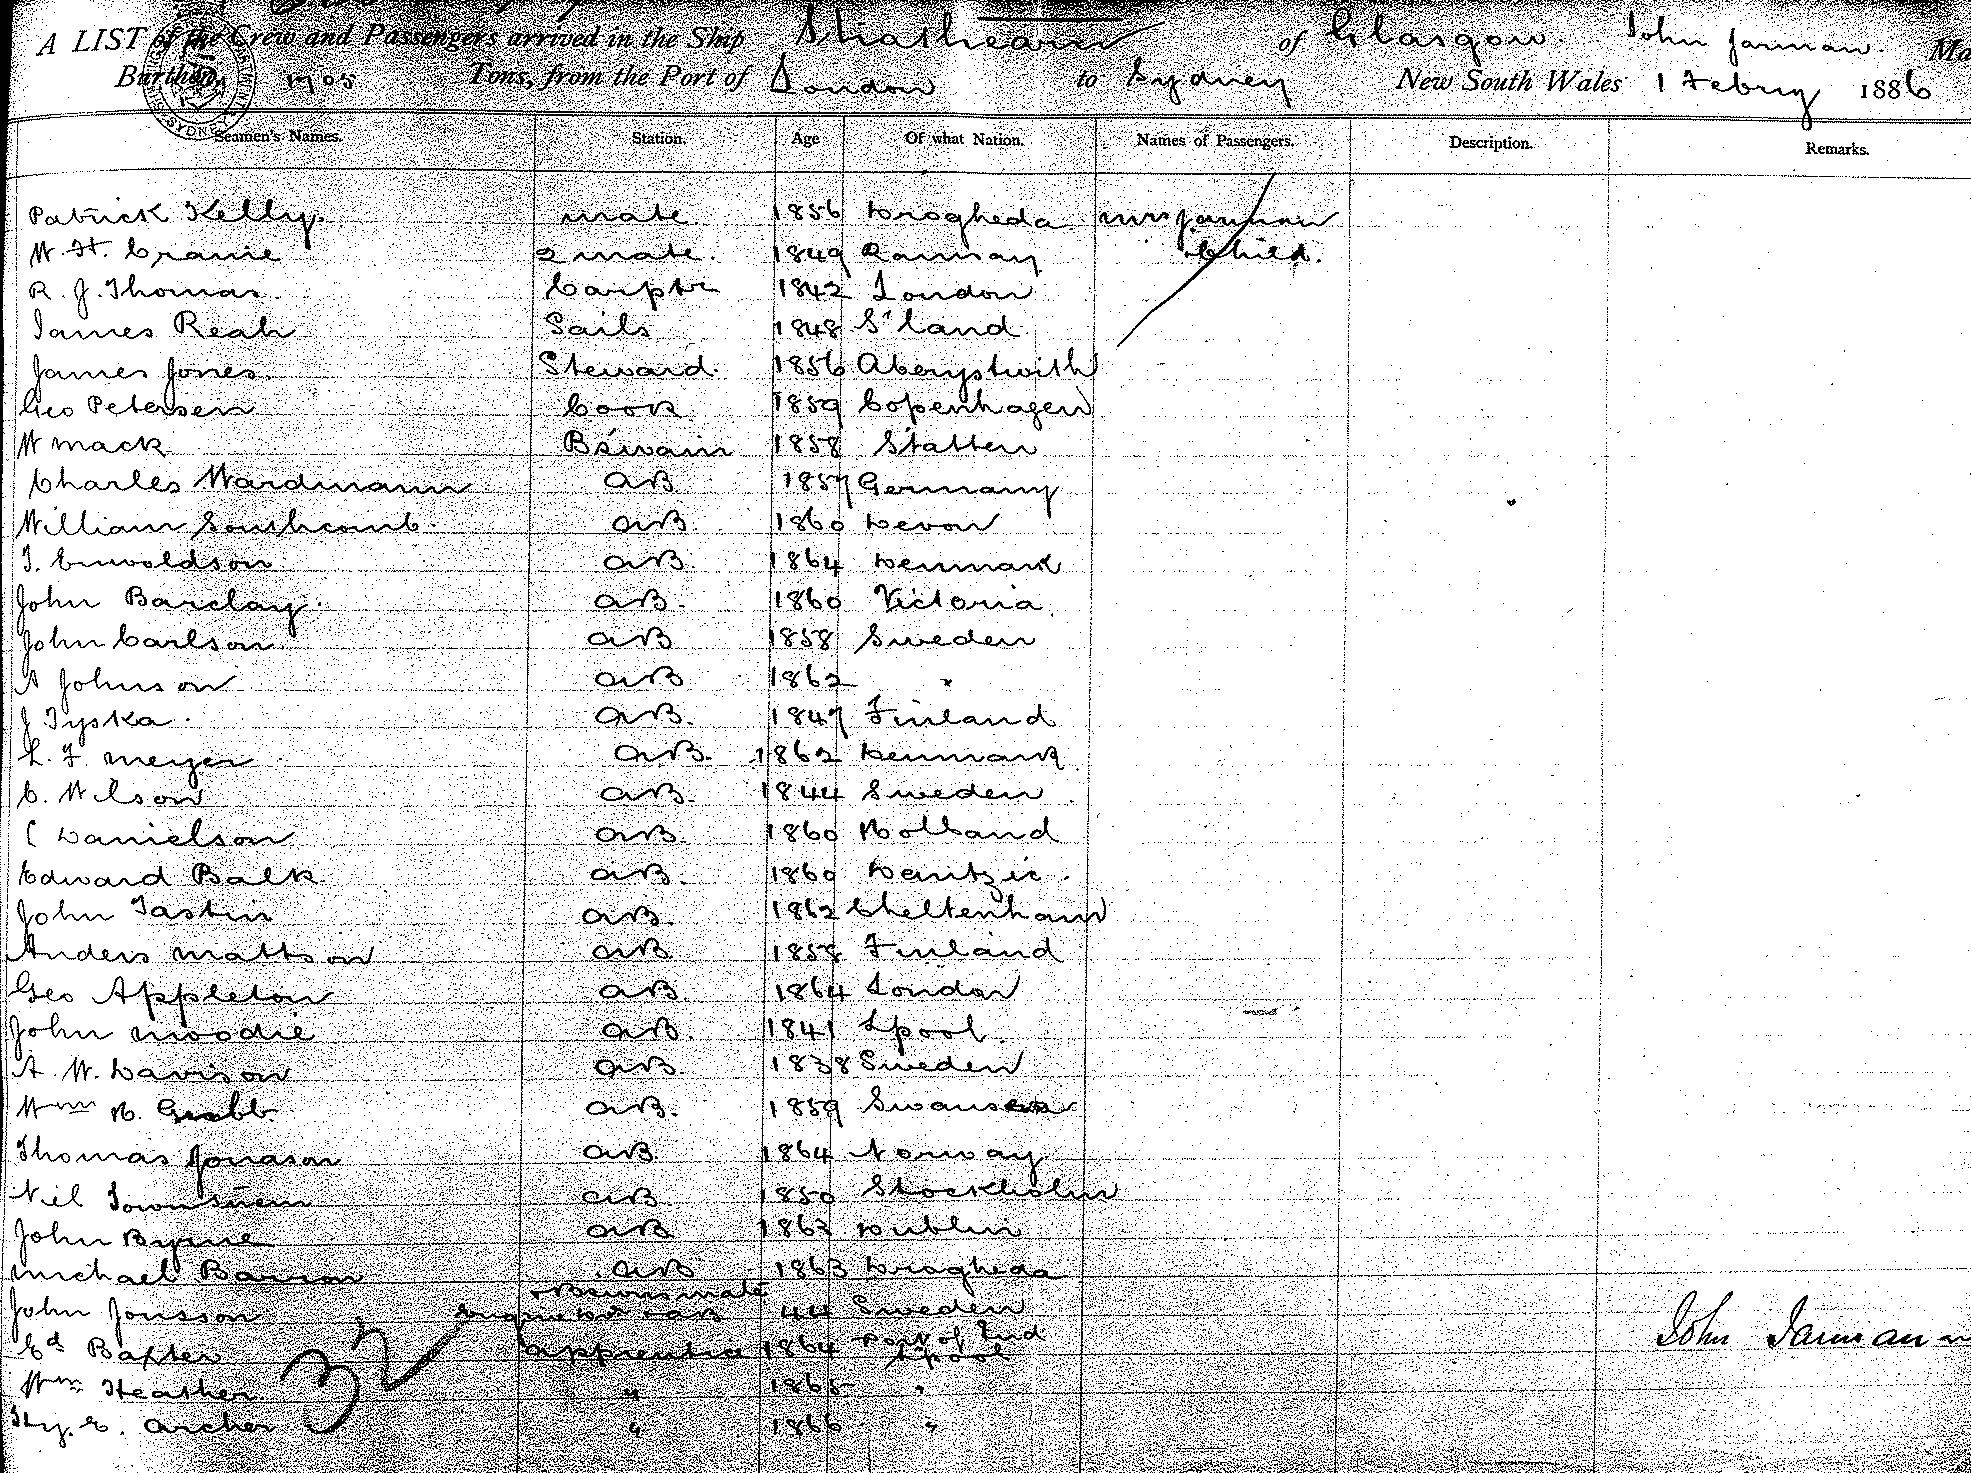 A LIST of the Crew and Passengers arrived in the Ship Strathearn of Glasgow John Jarman Ma
Burthen 1705 Tons, from the Port of London to Sydney New South Wales 1 Febry 1886
Seamen's Names. Station. Age Of what Nation. Names of Passengers. Description. Remarks.
Patrick Kelly mate 1856 Drogheda Mrs Jarman
W. H. Cranie 2 mate. 1849 Ramsay Child.
R. J. Thomas Carptr 1842 London
James Reah Sails 1848 S'land
James Jones Steward 1856 Aberystwith
Geo Petersen Cook 1859 Copenhagen
W Mack Bswain 1858 Statten
Charles Wardmann AB 1857 Germany
William Southcomb AB 1860 Devon
T. AB 1864 Denmark
John Barclay AB 1860 Victoria
John Carlson AB 1858 Sweden
A Johnson AB 1862 "
J Tyska AB 1847 Finland
L. F. Meyer AB 1862 Denmark
C. Nilson AB 1844 Sweden
Danielson AB 1860 Holland
Edward Balk AB 1860 Dantzic
John Tastin AB 1862 Cheltenham
Anders Mattson AB 1858 Finland
Geo Appleton AB 1864 London
John Moodie AB 1841 Lpool
A. W. Davison AB 1838 Sweden
Wm H. AB 1859 Swansea
Thomas Jonason AB 1864 Norway
Neil AB 1850 Stockholm
John Byrne AB 1863 Dublin
Michael AB 1863 Drogheda
John Jonsson Bswns mate AB 44 Sweden
Ed Baxter Apprentice 1864 Lpool
Wm Heather " 1865 "
Hy. E. Archer " 1866 "
32
John Jarman